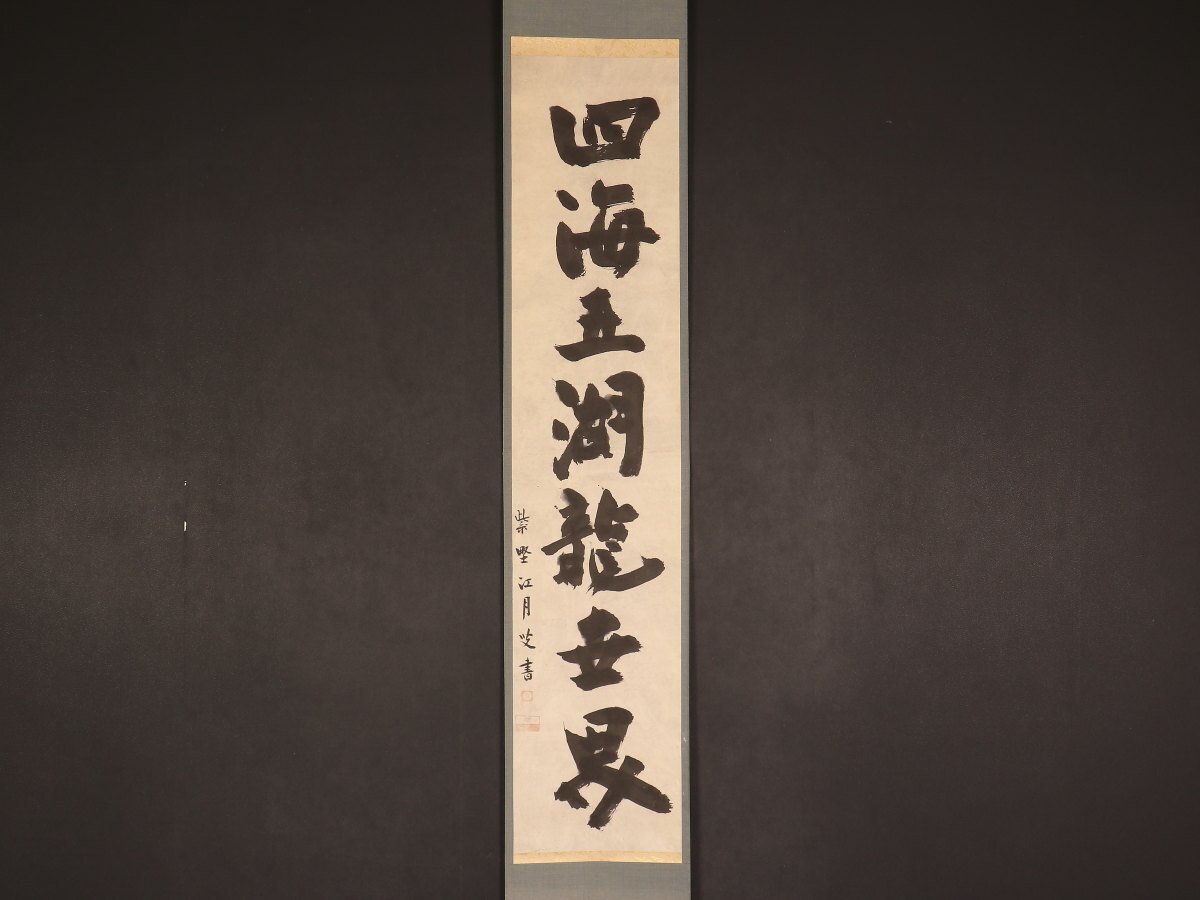 四海五湖龍世界
紫野江月叟書